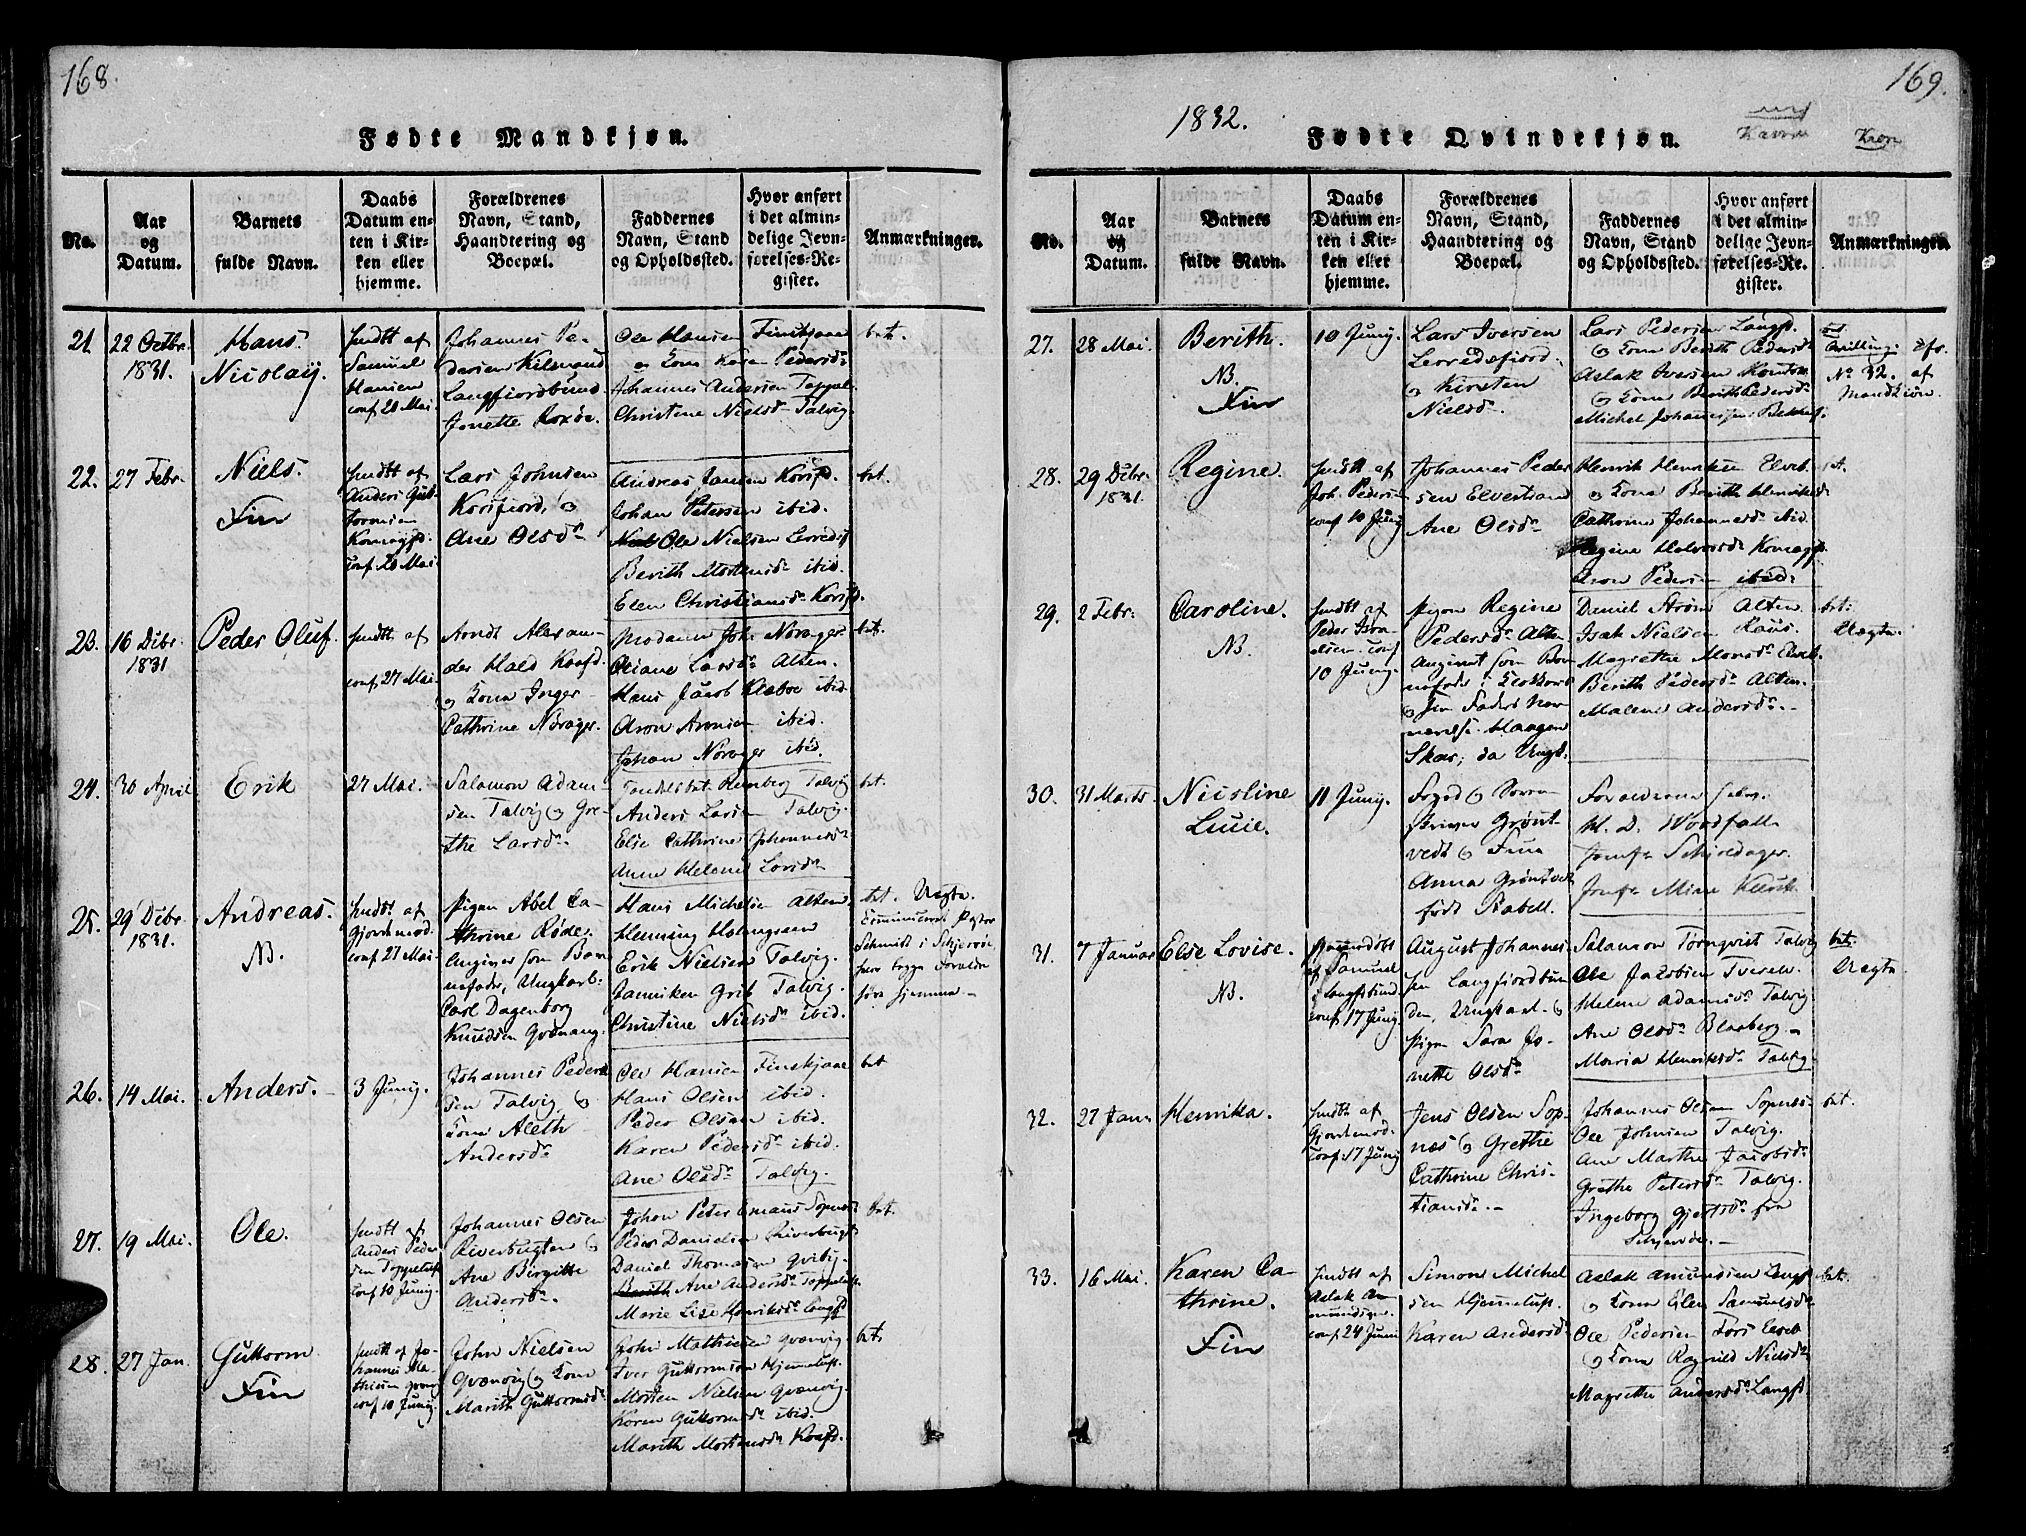 168.
Fødte Mandkjøn.
No.
Aar og Datum.
Barnets fulde Navn.
Daabs Datum enten i Kirken eller hjemme.
Forældrenes Navn, Stand, Haandtering og Boepæl.
Faddernes Navn, Stand og Opholdssted.
Hvor anført i det almindelige Jevnførelses-Register.
Anmærkninger.
21.
22 Octbr.
1831.
Hans
Nicolaij.
hmdt af
Samuel
Hansen
conf. 20 Mai.
Johannes Pe-
dersen
Langfjordbund
Ole Hansen Finskjane
Kona Karen Pedersd.
Johannes Andersen Toppel.
Christine Nielsd. Talvig.
bet.
22.
27 Febr.
Niels.
Fin
hmdt af
Anders Gut-
tormsen
Komagf.
conf. 20 Mai.
Lars Johnsen
Korsfiord, og
Ane Olsdr.
Andreas Jansen Korsfd.
Johan Petersen ibid.
Ole Nielsen Lerredsf
Berith Mortensdr ibid.
Elen Christiansdr. Korsfd.
bet.
23.
16 Dcbr.
1831
Peder Oluf.
hmdt. af
conf. 27 Mai.
Arndt Alexan-
der Hald Kaafd.
og Kona Inger
Cathrine Norager.
Madame Joh. Norager
Oliane Larsdr. Alten.
Hans Jacob Klæboe ibid.
Aron Aronsen ibid.
Johan Norager ibid.
bet.
24.
30 April
Erik
27 Mai.
Salamon Adam-
sen Talvig og Gre-
the Larsdr.
Remberg Talvig
Anders Larsen Talvig.
Else Cathrine Johannesdr.
Anne Helene Larsdr
bet.
25.
29 Dcbr
1831.
Andreas.
NB.
hmdt. af
Gjordemod.
conf 27 Mai.
Pigen Abel Ca-
thrine Røde.
Angiver som Bar-
nefader, Ungkarl
Carl Dagenborg
Knudsen Qvænang.
Hans Michelsen Alten
Henning Holmgreen
Erik Nielsen Talvig.
Janniken Grib Talvig.
Christine Nielsdr ibid.
bet. Uægte.
Communiceret Pastor
Schmidt i Skjervøe,
hvor begge Forældre
høre hjemme.
26.
14 Mai.
Anders.
3 Junij.
Johannes Peder-
sen Talvig, og
Kona Aleth
Andersdr
Ole Hansen Finskjane
Hans Olsen ibid.
Peder Olsen ibid.
Karen Pedersdr ibid.
Ane Olsdr Talvig.
bet
27.
19 Mai.
Ole.
hmdt af
Anders Peder-
sen Toppeluft
conf 10 Junij.
Johannes Olsen
Riverbugten og
Ane Birgitte
Andersdr.
Johan Peter Emaus Sopnes
Peder Danielsen Riverbugt
Daniel Thomasen
Berith Ane Andersdr. Toppeluft
Marie Lise Henriksdr. Langfd
bet.
28.
27 Jan.
Guttorm
Fin
hmdt af Jo-
hannes Ma-
thisen Qvænv.
conf 10 Junij.
John Nielsen
Qvænvig og Kona
Marith Guttormsdr
John Mathisen Qvænvig
Iver Guttormsen Hjemeluft.
Morten Nielsen Qvænvig.
Karen Guttormsdr ibid.
Marith Mortensdr Kaafd.
bet.
169.
1832.
Fødte Qvindekjøn.
Karen
Kron
No.
Aar og Datum.
Barnets fulde Navn.
Daabs Datum enten i Kirken eller hjemme.
Forældrenes Navn, Stand, Haandtering og Boepæl.
Faddernes Navn, Stand og Opholdssted.
Hvor anført i det almindelige Jevnførelses-Register.
Anmærkninger.
27.
28 Mai.
Berith.
NB.
Fin
10 Junij.
Lars Iversen
Lerredsfjord.
og Kirsten
Nielsdr.
Lars Pedersen Langfd.
og Kona Berith Pedersdr
Aslak Iversen
og Kona Berith Pedersdr
Michel Johannesen
Tvilling: cfr.
No 32. af
Mandkiøn.
28.
29 Dcbr.
1831.
Regine.
hmdt af
Joh. Peders-
conf 10 Junij
Johannes Peder
sen Elvestrand
Ane Olsdr
Henrik Henriksen Elveb.
og Kona Berith Henriksd.
Cathrine Johannesdr ibid
Regine Halvorsdr Komagf.
Aron Pedersen ibid.
bet.
29.
2 Febr.
Caroline.
NB.
hmdt af
Peder Isra-
elsen. conf
10 Junij.
Pigen Regine
Pedersdr Alten
Angivet som Bar-
nefader:
Haagen
Skar, da Ungk.
Daniel Strøm Alten
Isak Nielsen
Magrethe Monsdr Elveb.
Berith Pedersdr. Alten.
Malene Andersdr.
bet:
Uægte.
30.
31 Marts.
Nicoline
Lucie.
11 Junij.
Foged og Soren-
skriver Grønt-
vedt og Frue
Anna Grøntvedt
født Stabell.
Forældrene selv.
H. D. Woodfall
Jomfr Schiredager.
Jomfr Mine Klerck
31.
7 Januar
Else Lovise.
NB.
hjemmedøbt
af Samuel
i Langfjbund.
conf 17 Junij
August Johannes-
sen Langfjordbun-
den, Ungkarl og
Pigen Sara Jo-
nette Olsdr
Salamon Tørnqvist Talvig
Ole Jacobsen Tverelv.
Helene Adamsdr Talvig.
Ane Olsdr Blasberg
Maria Henriksdr Talvig
bet.
Uægte.
32.
27 Jan.
Henrika.
hmdt af
Gjordemod.
conf 17 Junij
Jens Olsen Sop-
næs og Grethe
Cathrine Chris-
tiansdr.
Johannes Olsen Sopnæs
Ole Johnsen Talvig.
Ane Marthe Jacobsdr
Grethe Petersdr Talvig.
Ingeborg Gjertsdr fra
Schjervøe.
bet.
33.
16 Mai.
Karen Ca-
thrine.
Fin
hmdt af
Aslak A-
mundsen
conf 24 Junij
Simon Michel-
sen Hjemeluft.
Karen Andersdr
Aslak Amundsen Langf
og Kona Elen Samuelsdr
Ole Pedersen Elveb
og Kona Ragnild Nielsdr
Magrethe Andersdr Langfd
bet.